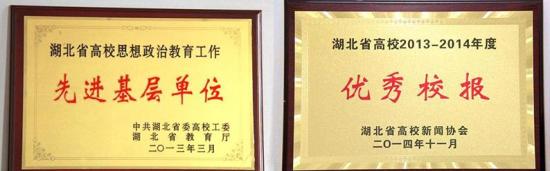 湖北省高校思想政治教育工作
先进基层单位
中共湖北省委高校工委
湖北省教育厅
二〇一三年三月
湖北省高校2013-2014年度
优秀校报
湖北省高校新闻协会
二〇一四年十一月